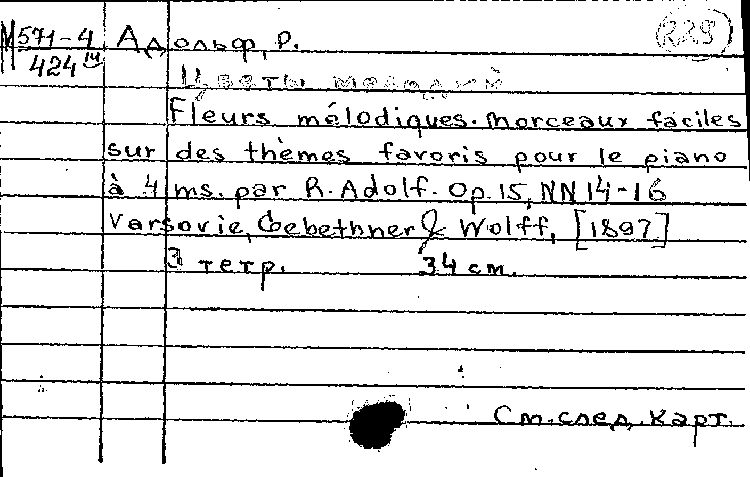 М 571-4 Адольф, Р. 229
424 14
Цветы мелодий
Fleurs mélodiques. Morceaux faciles
sur des thèmes favoris pour le piano
à 4 ms. par R. Adolf. Op. 15, NN 14-16
Varsovie, Gebethner & Wolff, [1897]
3 тетр. 34 cm.
См. след. карт.